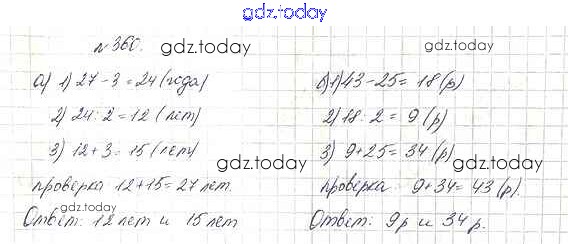 gdz.today
№ 360.
gdz.today
gdz.today
а) 1) 27 - 3 = 24 (года)
2) 24 : 2 = 12 (лет)
3) 12 + 3 = 15 (лет)
gdz.today
проверка 12 + 15 = 27 лет.
gdz.today
Ответ: 12 лет и 15 лет
б) 1) 43 - 25 = 18 (р)
2) 18 : 2 = 9 (р)
gdz.today
3) 9 + 25 = 34 (р)
gdz.today
проверка: 9 + 34 = 43 (р).
Ответ: 9 р и 34 р.